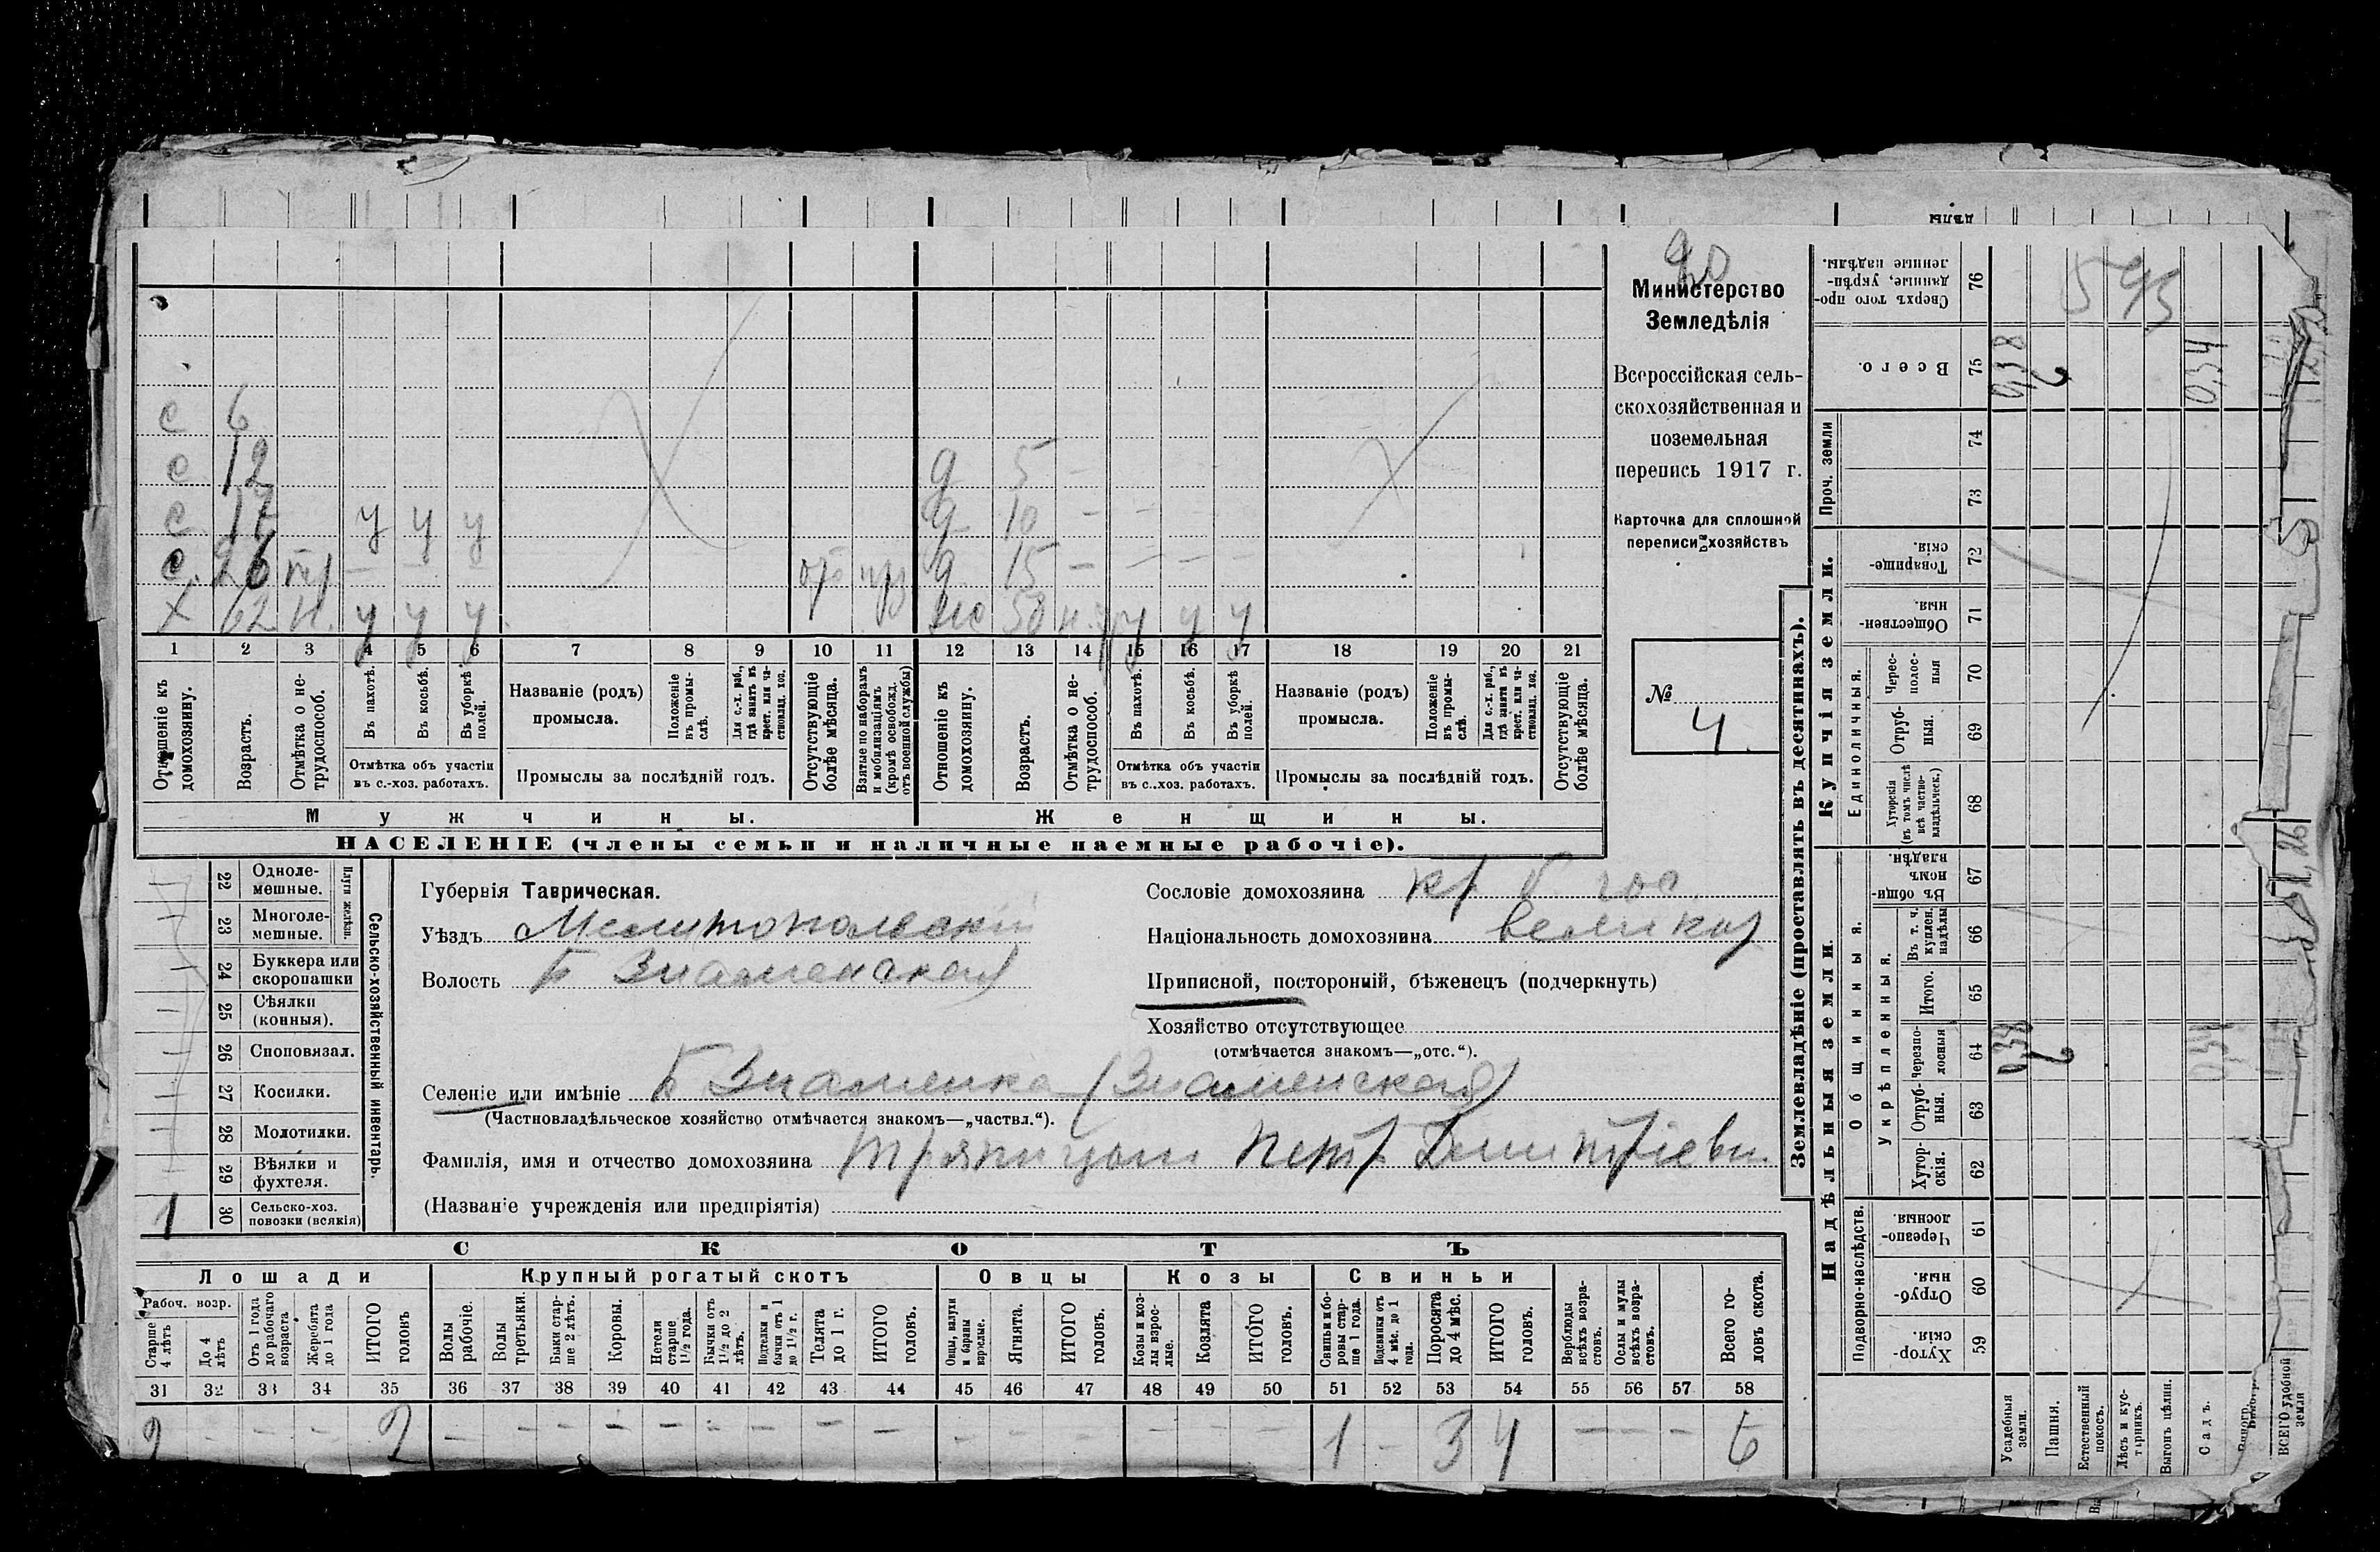 Министерство
Земледѣлія
Всероссійская сель-
скохозяйственная и
поземельная
перепись 1917 г.
Карточка для сплошной
переписи хозяйствъ
№
4.
с 6
с 12
д 5 -
с 17 у у у
д 10 - - -
с. 26 - - -
д 15 - - - -
х 62 н. у у у
50 н. у у у
1 2 3 4 5 6 7 8 9 10 11 12 13 14 15 16 17 18 19 20 21
Отношеніе къ домохозяину.
Возрастъ.
Отмѣтка о не-трудоспособ.
Въ пахотѣ.
Въ косьбѣ.
Въ уборкѣ полей.
Отмѣтка объ участіи въ с.-хоз. работахъ.
Названіе (родъ) промысла.
Положеніе въ промы-слѣ.
Для с.-х. раб., гдѣ занятъ въ крест. или ча-стновлад. хоз.
Промыслы за послѣдній годъ.
Отсутствующіе болѣе мѣсяца.
Взятые по наборамъ и мобилизаціямъ (кромѣ освобожд. отъ военной службы)
Отношеніе къ домохозяину.
Возрастъ.
Отмѣтка о не-трудоспособ.
Въ пахотѣ.
Въ косьбѣ.
Въ уборкѣ полей.
Отмѣтка объ участіи въ с..хоз. работахъ.
Названіе (родъ) промысла.
Положеніе въ промы-слѣ.
Для с.-х. раб., гдѣ занята въ крест. или ча-стновлад. хоз.
Промыслы за послѣдній годъ.
Отсутствующіе болѣе мѣсяца.
Мужчины.
Женщины.
НАСЕЛЕНІЕ (члены семьи и наличные наемные рабочіе).
Сельско-хозяйственный инвентарь.
Плуги желѣзн.
22 Одноле-мешные.
23 Многоле-мешные.
24 Буккера или скоропашки
25 Сѣялки (конныя).
26 Сноповязал.
27 Косилки.
28 Молотилки.
29 Вѣялки и фухтеля.
1 30 Сельско-хоз. повозки (всякія)
Губернія Таврическая.
Уѣздъ Мелитопольскій
Волость Б Знаменская
Сословіе домохозяина кр. б. гос
Національность домохозяина великор
Приписной, посторонній, бѣженецъ (подчеркнуть)
Хозяйство отсутствующее
(отмѣчается знакомъ—„отс.“).
Селеніе или имѣніе Б Знаменка (Знаменская)
(Частновладѣльческое хозяйство отмѣчается знакомъ—„частвл.“).
Фамилія, имя и отчество домохозяина Петр Дмитріеви
(Названіе учрежденія или предпріятія)
СКОТЪ
Лошади
Крупный рогатый скотъ
Овцы
Козы
Свиньи
Рабоч. возр.
Старше 4 лѣтъ
До 4 лѣтъ
Отъ 1 года до рабочаго возраста
Жеребята до 1 года
ИТОГО головъ
Волы рабочіе.
Волы третьяки.
Быки стар-ше 2 лѣтъ.
Коровы.
Нетели старше 1½ года.
Бычки отъ 1½ до 2 лѣтъ.
Подтелки и бычки отъ 1 до 1½ г.
Телята до 1 г.
ИТОГО головъ.
Овцы, валухи и бараны взрослые.
Ягнята.
ИТОГО головъ.
Козы и коз-лы взрос-лые.
Козлята
ИТОГО головъ.
Свиньи и бо-ровы стар-ше 1 года.
Подсвинки отъ 4 мѣс. до 1 года.
Поросята до 4 мѣс.
ИТОГО головъ.
Верблюды всѣхъ возра-стовъ.
Ослы и мулы всѣхъ возра-стовъ.
Всего го-ловъ скота.
31 32 33 34 35 36 37 38 39 40 41 42 43 44 45 46 47 48 49 50 51 52 53 54 55 56 57 58
2 - - - 2 - - - - - - - - - - - - - - - 1 - 3 4 - - - 6
Землевладѣніе (проставлять въ десятинахъ).
Надѣльныя земли.
Купчія земли.
Проч. земли
Подворно-наслѣдств.
Общинныя.
Укрѣпленныя.
Единоличныя.
Хутор-скія. 59
Отруб-ныя. 60
Черезпо-лосныя 61
Хутор-скія. 62
Отруб-ныя. 63
Черезпо-лосныя 64
Итого. 65
Въ т. ч. куплен. надѣлы 66
Въ общин-номъ владѣн. 67
Хуторскія (въ томъ числѣ всѣ частно-владѣльческ.) 68
Отруб-ныя. 69
Черес-полос-ныя 70
Обществен-ныя. 71
Товарище-скія. 72
73
74
Всего. 75
Сверхъ того про-данные, укрѣп-ленные надѣлы. 76
0,38
2
0,54
0,38
2
0,54
Усадебныя земли.
Пашня.
Естественный покосъ.
Лѣсъ и кус-тарникъ.
Выгонъ цѣлин.
Садъ.
ВСЕГО удобной земли